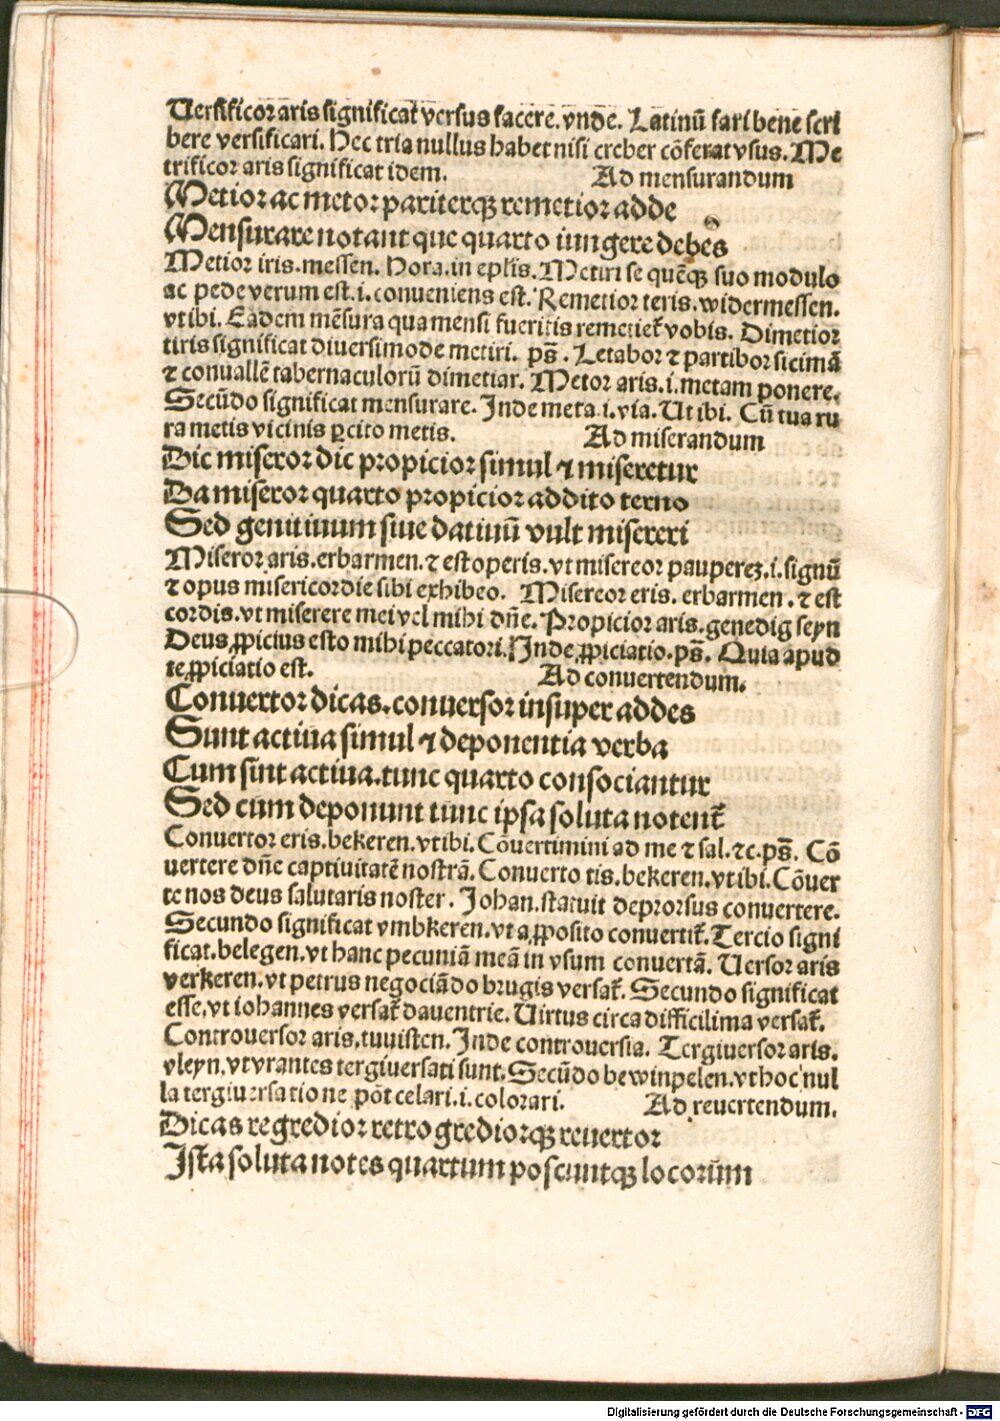 Uersificor aris significat versus facere. vnde. Latinū fari bene scri
bere versificari. Hec tria nullus habet nisi creber cōferat vsus. Me
trificor aris significat idem. Ad mensurandum
Metior ac metor pariterqꝫ remetior adde
Mensurare notant que quarto iungere debes
Metior iris. messen. Hora. in eplis. Metiri se quēqꝫ suo modulo
ac pede verum est. i. conueniens est. Remetior teris. widermessen.
vt ibi. Eadem mēsura qua mensi fueritis remetieƭ vobis. Dimetior
tiris significat diuersimode metiri. ps̄. Letabor ⁊ partibor sicimā
⁊ conuallē tabernaculorū dimetiar. Metor aris. i. metam ponere.
Secūdo significat mensurare. Inde meta. i. via. Ut ibi. Cū tua ru
ra metis vicinis ꝑcito metis. Ad miserandum
Dic miseror dic propicior simul ⁊ miseretur
Da miseror quarto propicior addito terno
Sed genitiuum siue datiuū vult misereri
Miseror aris. erbarmen. ⁊ est operis. vt misereor paupereꝫ. i. signū
⁊ opus misericordie sibi exhibeo. Misereor eris. erbarmen. ⁊ est
cordis. vt miserere mei vel mihi dn̄e. Propicior aris. genedig seyn
Deus ꝓpicius esto mihi peccatori. Inde ꝓpiciatio. ps̄. Quia apud
te ꝓpiciatio est. Ad conuertendum.
Conuertor dicas. conuersor insuper addes
Sunt actiua simul ⁊ deponentia verba
Cum sint actiua. tunc quarto consociantur
Sed cum deponunt tunc ipsa soluta notent̄
Conuertor eris. bekeren. vt ibi. Cōuertimini ad me ⁊ sal. ⁊c. ps̄. Cō
uertere dn̄e captiuitatē nostrā. Conuerto tis. bekeren. vt ibi. Cōuer
te nos deus salutaris noster. Johan. statuit deprorsus conuertere.
Secundo significat vmbkeren. vt a ꝓposito conuertiƭ. Tercio signi
ficat. belegen. vt hanc pecuniā meā in vsum conuertā. Uersor aris
verkeren. vt petrus negociādo brugis versaƭ. Secundo significat
esse. vt iohannes versaƭ dauentrie. Uirtus circa difficilima versaƭ.
Controuersor aris. tuuisten. Inde controuersia. Tergiuersor aris.
vleyn. vt vrantes tergiuersati sunt. Secūdo bewinpelen. vt hoc nul
la tergiuersatione pōt celari. i. colorari. Ad reuertendum.
Dicas regredior retrogrediorqꝫ reuertor
Ista soluta notes quartum poscuntqꝫ locorūm
Digitalisierung gefördert durch die Deutsche Forschungsgemeinschaft - DFG